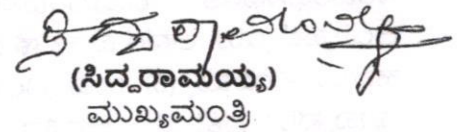 ಸಿದ್ದರಾಮಯ್ಯ
(ಸಿದ್ದರಾಮಯ್ಯ)
ಮುಖ್ಯಮಂತ್ರಿ